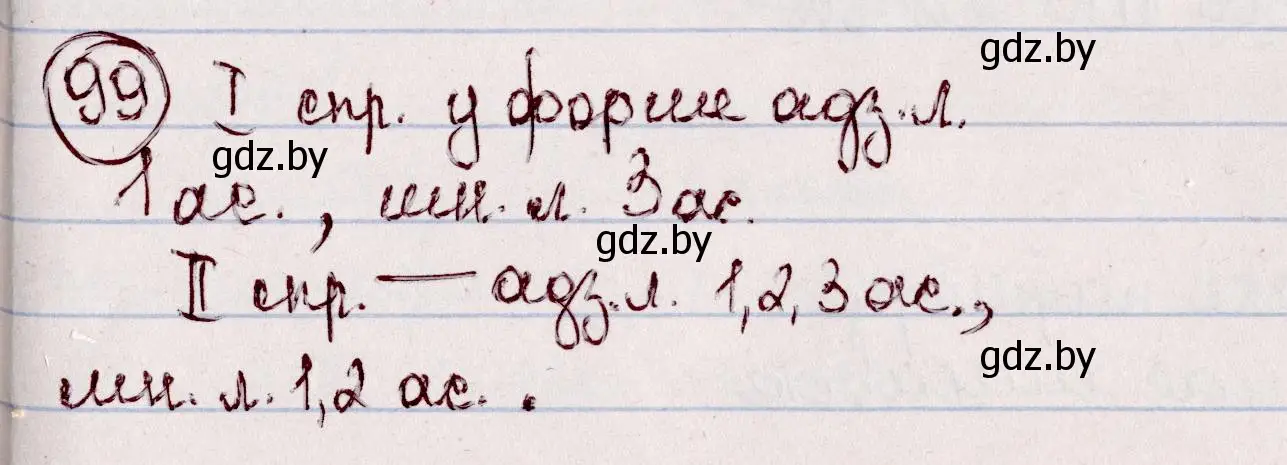 gdz.by
99 I спр. у форме адз.л.
gdz.by
1 ас., мн.л. 3 ас.
gdz.by
II спр. — адз.л. 1,2,3 ас.,
gdz.by
мн.л. 1,2 ас..